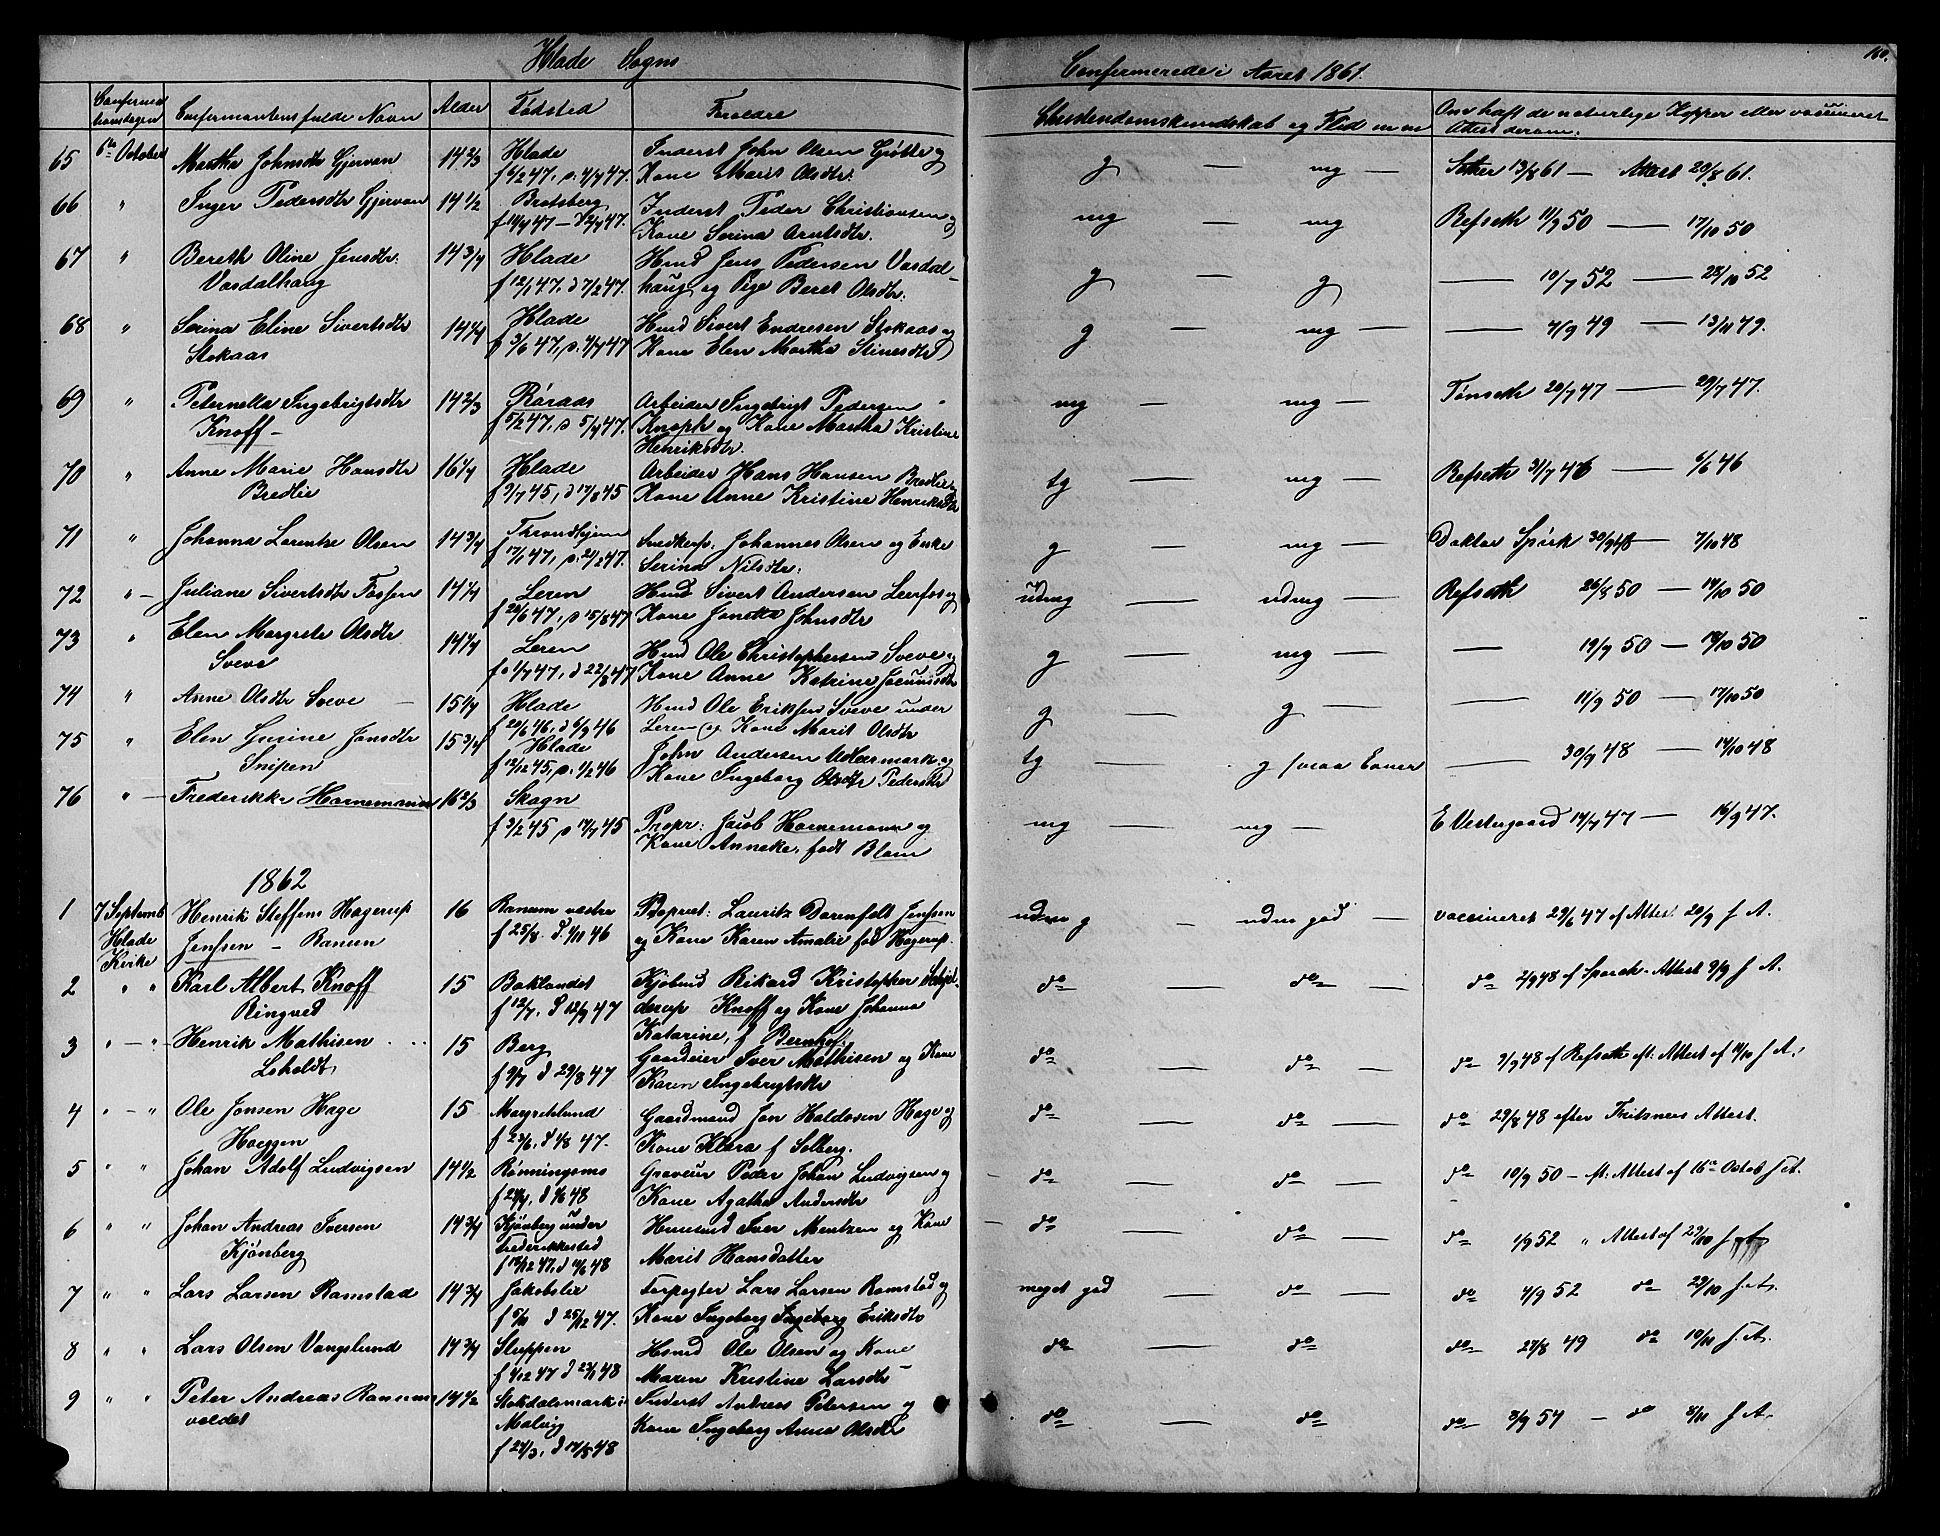 Hlade Sogn
Confirmerede i Aaret 1861.
160.
Confirmationsdagen
Confirmantens fulde Navn
Alder
Fødsted
Forældre
Christendomskundskab og Flid
Om haft de naturlige Kopper eller vaccineret
Attest derom.
65 6te October Martha Johnsdtr Gjervan 14 2/3 Hlade Inderst John Olsen og g — mg — 13/8 61 — Attest 20/8 61.
Kone Marit Olsdtr.
66 " Inger Pedersdtr Gjervan 14 1/2 Bratsberg Inderst Peder Christiansen og mg mg Refseth 11/9 50 — 17/10 50
Kone Serina Arntsdtr.
67 " Bereth Oline Jensdtr: 14 3/4 Hlade Hmd Jens Pedersen Vasdal- g — g — 10/7 52 — 28/10 52
Vasdalhaug f 12/1 47. d 7/2 47. haug og Pige Beret Olsdtr.
68 " Serina Eline Sivertsdtr 14 1/4 Hlade Hmd Sivert Endresen Stokaas og g — mg — 49 — 13/11 49.
Stokaas Kone Elen Martha Stinesdtr
69 " Peternella Ingebrigtsdtr 14 2/3 Røraas Arbeider Ingebrigt Pedersen mg — mg — Tønseth 20/7 47 — 29/7 47.
Knoff — Knoph og Kone Martha Kristine
Henriksdtr.
70 " Anne Marie Hansdtr 16 1/4 Hlade Arbeider Hans Hansen Bredlie og tg — mg — Refseth 31/7 46 — 6/6 46
Bredlie f 3/7 45, d 17/8 45 Kone Anne Kristine Henriksdtr
71 " Johanna Lorentze Olsen 14 3/4 Throndhjem Snedkersv. Johannes Olsen og Enke g — mg — Doktor Spörck 30/9 48 — 7/10 48
f 17/1 47, d. 21/2 47. Serina Nilsdtr.
72 " — Juliane Sivertsdtr Fossen 14 1/4 Leren Hmd Sivert Andersen Leerfos og udmg — udmg — Refseth 26/8 50 — 14/10 50
f 20/6 47, d 15/8 47 Kone Jonetta Johnsdtr
73 " Elen Margrete Olsdtr 14 1/4 Leren Hmd Ole Christophersen Sveve og g — mg — 19/9 50 — 18/10 50
Sveve d 22/8 47 Kone Anne Katrine
74 " Anne Olsdtr Sveve — 15 1/4 Hlade Hmd Ole Eriksen Sveve under g — g — 11/9 50 — 17/10 50
f 20/6 46, d 6/9 46 Leren og Kone Marit Olsdtr
75 " Elen Gurine Jonsdtr 15 3/4 Hlade John Andersen Udlærmark og tg — g — 30/9 48 — 14/10 48
Snipen f 12/12 45, d. 1/2 46 Kone Ingeborg Olsdtr Pedersdtr
76 " — Frederikke Hornemann 16 2/3 Skogn Propr: Jacob Hornemann og mg — mg — E Vestergaard 14/7 47 — 16/9 47.
f 3/2 45 d 14/7 45 Kone Anneke, født Blom
1862
1 7 Septemb Henrik Steffens Hagerup 16 Ranem vestre Propriet: Lauritz Dorenfelt Jenssen udm g — udm god — vaccineret 29/6 47 ef Attest 20/9 s. A.
Hlade Jenssen — Ranem f 25/8. d. 1/11 46 og Kone Karen Amalie fød Hagerup.
Kirke
2 " " Karl Albert Knoff 15 Baklandet Kjøbmd Rikard Kristopher Schjel- do — do — do 2/9 48 ef Sporck. Attest 9/9 s. A.
Ringved f 12/7. d 12/9 47 derup Knoff og Kone Johanna
Katarine, f Bernhof.
3 " — " Henrik Mathisen 15 Berg Gaardeier Iver Mathisen og Kone do — do — do 2/9 48 ef Refseth ef. Attest af 14/10 s. A.
Leholdt f 9/7 d 29/8 47 Karen Ingebrigtsdtr
4 " — " Ole Jonsen Hage 15 Margretelund Gaardmand Jon Haldosen Hage og do — do — do 29/8 48 efter Attest.
Hoeggen f 23/6, d 1/8 47. Kone Klara f Solberg.
5 " " Johan Adolf Ludvigsen 14 1/2 Rønningsms Graveur Peder Johan Ludvigsen og do — do — do 10/9 50 — ef: Attest af 16de Octob s. A.
Kone Agatha Andersdtr
6 " " Johan Andreas Iversen 14 3/4 Kjønberg under Husmd Iver Mentzen og Kone do — do — do 1/9 52 " Attest af 29/10 s. A.
Kjønberg Frederikkested Marit Hansdatter
f 12/12 47. d 12/6 48
7 " " Lars Larsen Ramstad 14 3/4 Jakobslie Forpagter Lars Larsen Ramstad og meget god — do — do 4/9 52 do 29/10 s. A.
f 5/11 d 25/12 47. Kone Ingeborg Ingeborg Eriksdtr
8 " " Lars Olsen Vangslund 14 3/4 Sluppen Husmd Ole Olsen og Kone do — do do 27/8 49 do 10/10 s. A.
f 4/12 47 d 23/1 48 Maren Kristine Larsdtr
9 " " Peter Andreas Ranems 14 1/2 Stokdalsmark i Inderst Andreas Petersen og do — do do 3/9 54 — do 8/11 s. A.
voldet Malvig Kone Ingeborg Anna Olsdtr
f 24/3, d 14/5 48